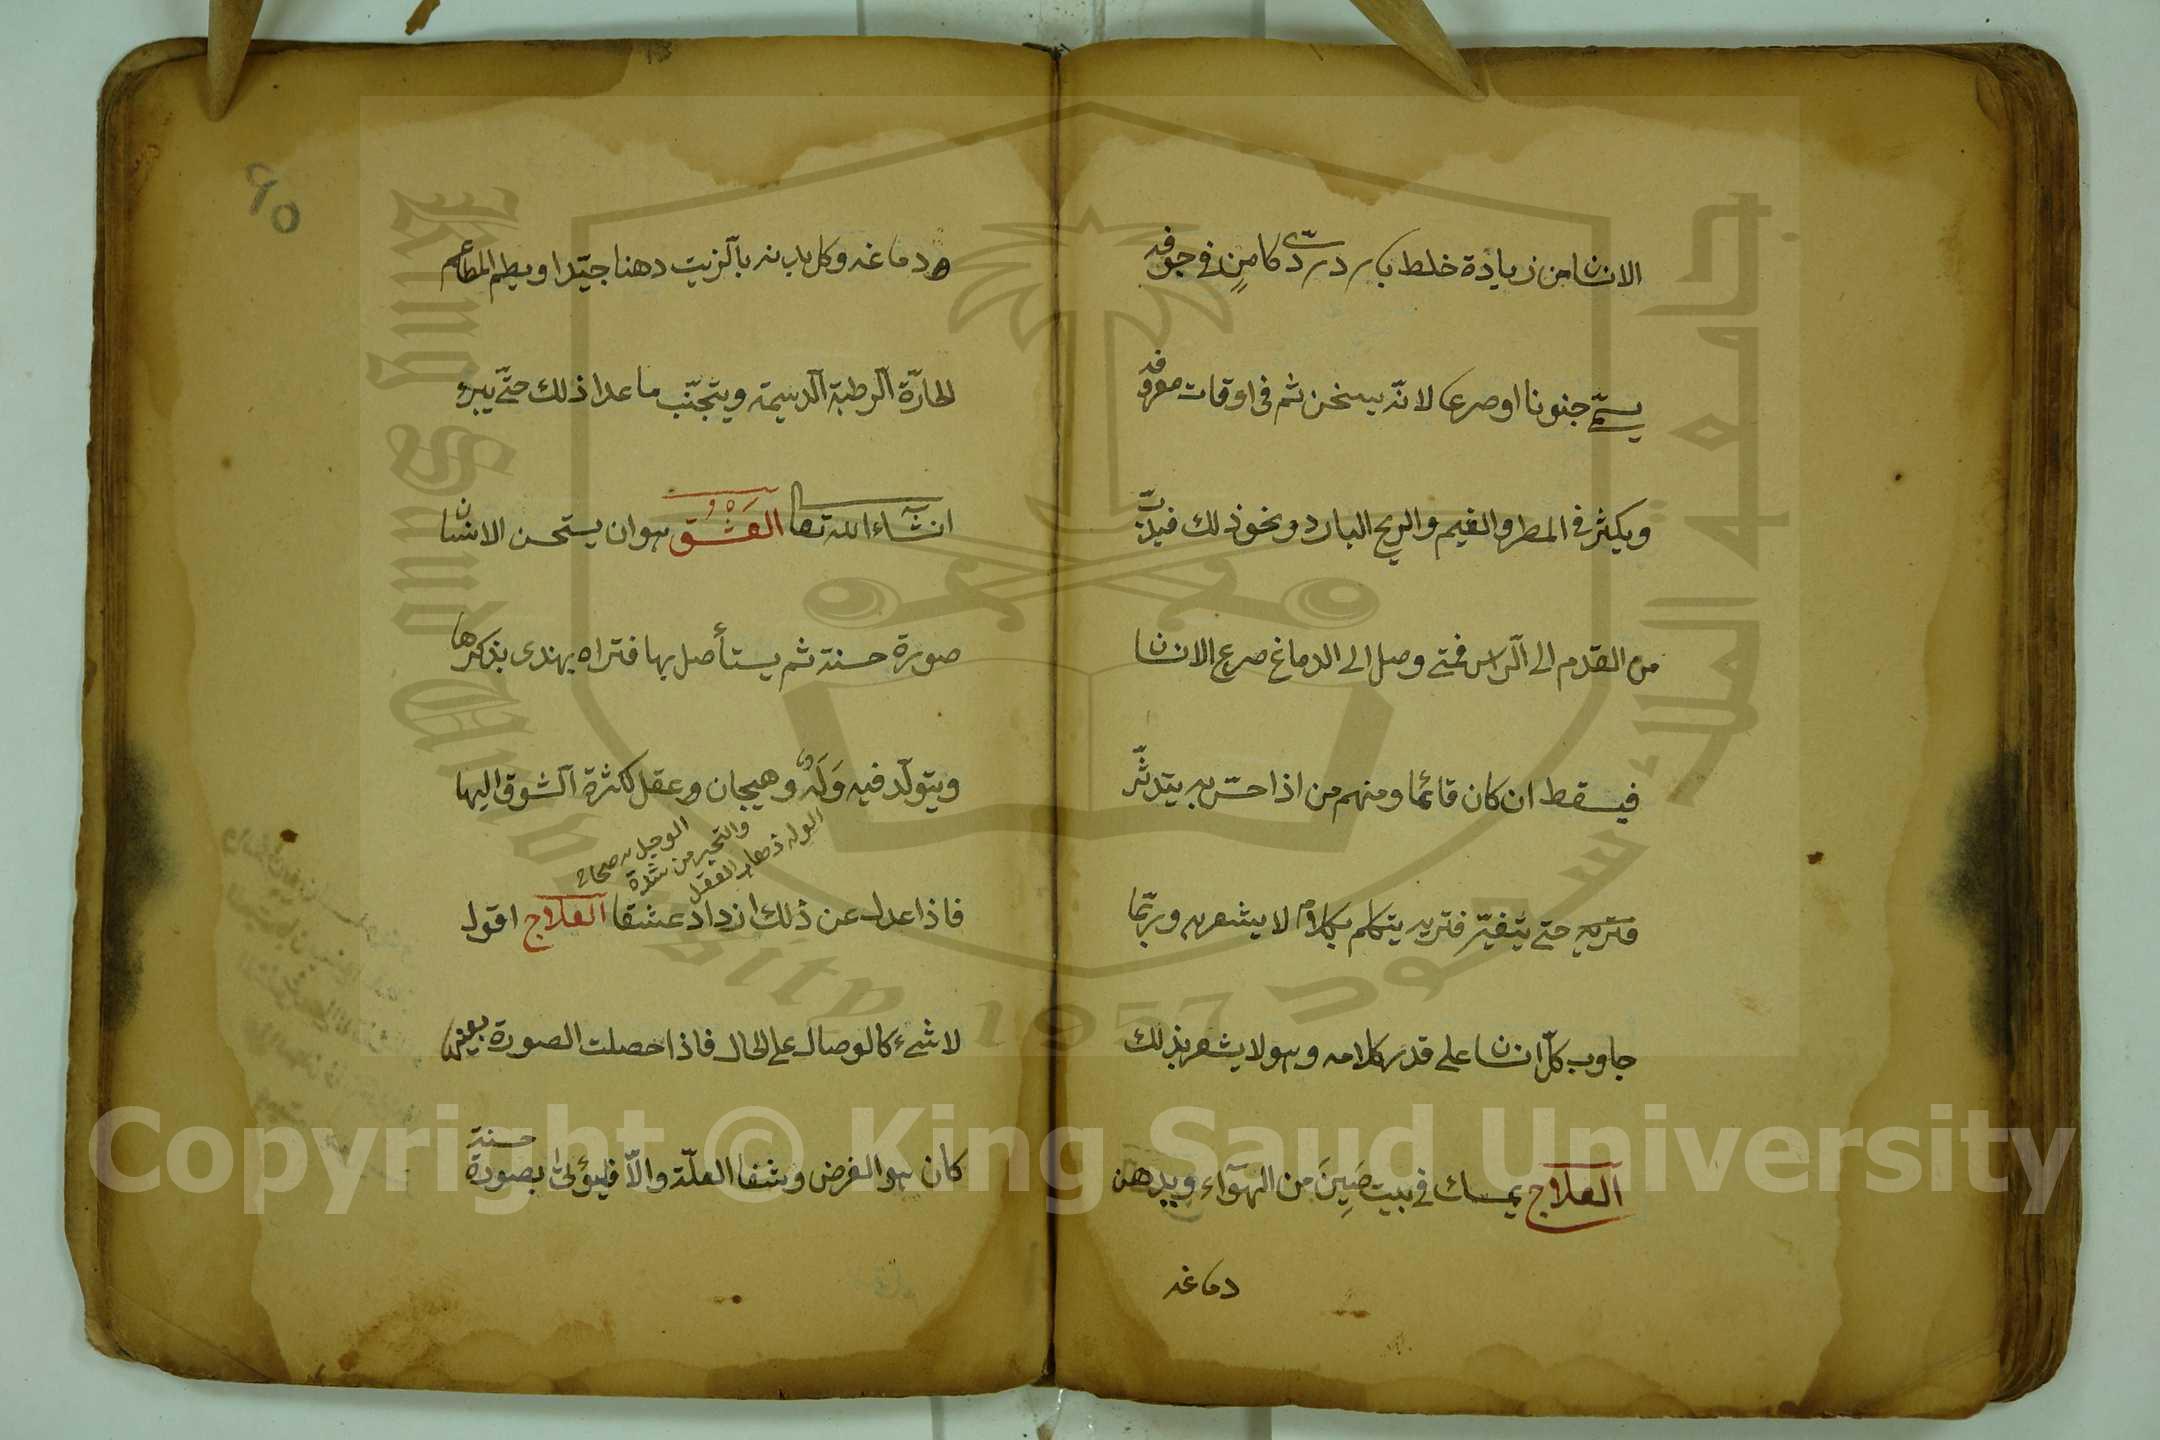 الانسان من زيادة خلط بارد ردّي كامن في جوفه
يسمّى جنونا او صرعا لانّه يسخن ثم في اوقات معروفه
ويكثر في المطر والغيم والريح البارد ونحو ذلك فيدبّ
من القدم الى الرّاس فمتى وصل الى الدماغ صرع الانسان
فيسقط ان كان قائما ومنهم من اذا حسّ به يتدثّر
فتريه حتى يتغيّر فتريه يتكلم بكلام لا يشعر به وربّما
جاوب كلّ انسان على قدر كلامه وهو لا يشعر بذلك
العلاج يمسك في بيت صَيِنَ من الهوآء ويدهن
دماغه
90
دماغه وكل بدنه بالزيت دهنا جيّدا ويطعم المطاعم
الحارّة الرطبة الدسمة ويتجنّب ما عدا ذلك حتّى يبرء
انشآء الله تعا العَشْقُ هو ان يستحسن الانسان
صورة حسنة ثم يستأصل بها فتراه يهذى بذكرها
ويتولّد فيه وَلَهٌ وهيجان وعقل لكثرة الشوق اليها
الوله ذهاب العقل
والتحير من شدة
الوجل صحاح
فاذا عدل عن ذلك ازداد عشقا العلاج اقول
لا شىء كالوصال على الحال فاذا حصلت الصورة بعينها
كان هو الغرض وشفا العلّة والاّ فليؤتى بصورة حسنة
جامعة الملك سعود
King Saud University 1957
Copyright © King Saud University